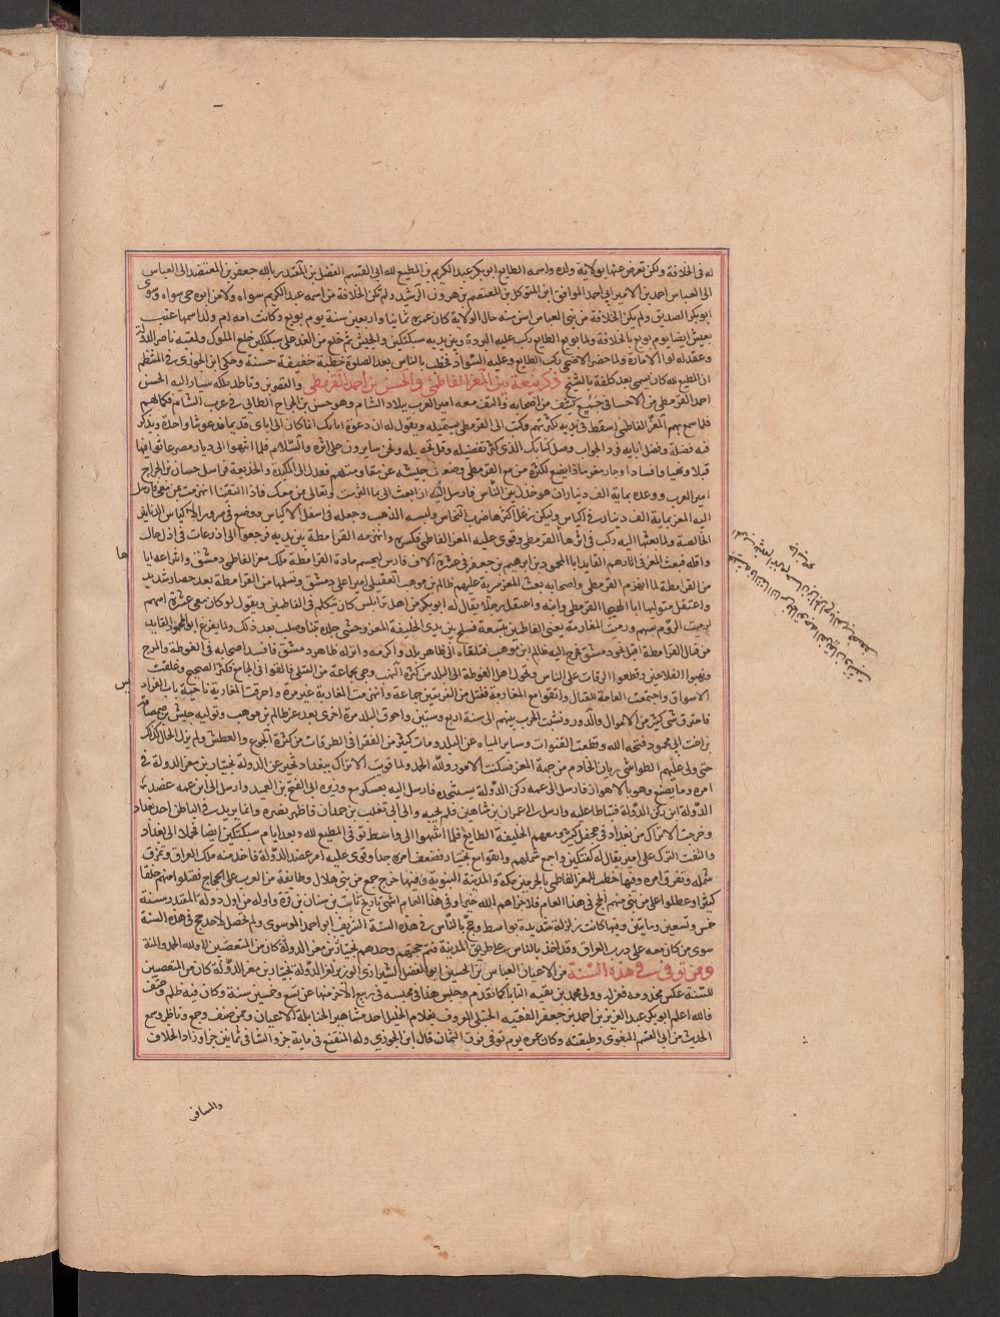 له في الخلافة ولكن تعرض عنها بولاية ولده واسمه الطايع ابو بكر عبد الكريم بن المطيع لله ابي القسم الفضل بن المقتدر بالله جعفر بن المعتضد ابي العباس
ابي العباس احمد بن الامير ابي احمد الموافق ابن المتوكل بن المعتصم بن هرون الرشيد ولم تكن الخلافة من اسمه عبد الكريم سواه ولا من ابوه حي سواه وسوى
ابو بكر الصديق ولم يلي الخلافة من بني العباس اسن منه حال الولاية كان عمره ثمانيا واربعين سنة يوم بويع وكانت امه ام ولد اسمها عتب
يعيش ايضا يوم بويع بالخلافة ولما بويع الطايع ركب عليه البردة وبين يديه سبكتكين والجيش ثم خلع من الغد على سبكتكين خلع الملوك ولقبه ناصر الدولة
وعقد له لوا الامارة ولما حضر الاضحى ركب الطايع وعليه السواد فخطب بالناس بعد الصلوة خطبة خفيفة حسنة وحكى ابن الجوزي في المنتظم
ان المطيع لله كان يسمى بعد خلعه بالشيخ ذكر بيعة بين المعز الفاطمي والحسن بن احمد القرمطي
احمد القرمطي من الاحسا في جيش كثيف من اصحابه والتف معه امير العرب ببلاد الشام وهو حسن بن الجراح الطائي في عرب الشام بكمالهم
فلما سمع بهم المعز الفاطمي اسقط في يديه لكثرتهم وكتب الى القرمطي يستميله ويقول له ان دعوة ابايك انما كان الى اباي قديما فدعوتنا واحدة ويذكر
فيه فضله وفضل ابايه فرد الجواب وصل كتابك الذي كثر تفضيله وقل تحصيله ونحن سايرون على اثره والسلام فلما انتهوا الى ديار مصر عاثوا فيها
قتلا ونهبا وفسادا وحار معز ماذا يصنع لكثرة من مع القرمطي وضعف جيشه عن مقاومتهم فعدل الى المكيدة والخديعة فراسل حسان بن الجراح
امير العرب ووعده بماية الف دينار ان هو خذل بين الناس فارسل اليه ان ابعث الي بما التزمت وتعالى بمن معك فاذا التقينا انهزمت بمن معي فارسل
اليه المعز بماية الف دينار في اكياس ولكن زغل اكثرها ضرب النحاس ولبسه الذهب وجعله في اسفل الاكياس ووضع في رؤوس الاكياس الدنانير
الخالصة ولما بعثها اليه ركب في اثرها القرمطي وقوى عليه المعز الفاطمي فكسره وانهزمه القرامطة بين يديه فرجعوا الى اذرعات في اذل حال
واقله فبعث المعز في اثارهم القايد ابا المحمود بن ابرهيم بن جعفر في عشرة الاف فارس ليحسم مادة القرامطة ملك المعز الفاطمي دمشق وانتزاعه اياها
من القرامطة لما انهزم القرمطي واصحابه بعث المعز سرية عليهم ظالم بن موهب العقيلي اميرا على دمشق وتسلمها من القرامطة بعد حصار شديد
واعتقل متوليها ابا الهيجا القرمطي وابنه واعتقل رجلا يقال له ابو بكر من اهل نابلس كان يتكلم في الفاطميين ويقول لو كان معي عشرة اسهم
لرميت الروم بسهم ورميت المغاربة يعني الفاطميين بتسعة فسلخ بين يدي الخليفة المعز وحشي جلده تبنا وصلب بعد ذلك ولما تفرغ ابو محمود القايد
من قتال القرامطة اقبل نحو دمشق فخرج اليه ظالم ابن موهب فتلقاه الى ظاهر بلد واكرمه وانزله ظاهر دمشق فافسد اصحابه في الغوطة والمرج
ونهبوا الفلاحين وقطعوا الطرقات على الناس وتحول اهل الغوطة الى البلد من كثرة النهب وجي بجماعة من القتلى فالقوا في الجامع فكثر الضجيج وغلقت
الاسواق واجتمعت العامة للقتال والتقوا مع المغاربة فقتل من الفريقين جماعة وانهزمت المغاربة غير مرة واحرقت المغاربة ناحية باب الفراديس
فاحترق شي كثير من الاموال والدور ونشبت الحرب بينهم الى سنة اربع وستين واحرق البلد مرة اخرى بعد عزل ظالم بن موهب وتوليه جيش بن صمصام
بن اخت ابي محمود فقبحه الله وقطعت القنوات وساير المياه عن البلد ومات كثير من الفقرا في الطرقات من كثرة الجوع والعطش ولم يزل الحال كذلك
حتى ولي عليهم الطواشي ريان الخادم من جهة المعز فسكنت الامور ولله الحمد ولما قويت الاتراك ببغداد تحير عز الدولة بختيار بن معز الدولة في
امره وما يصنع وهو بالاهواز فارسل الى عمه ركن الدولة يستنجده فارسل اليه بعسكر مع وزيره ابي الفتح بن العميد وارسل الى ابن عمه عضد
الدولة ابن ركن الدولة فتباطا عليه وارسل الى عمران بن شاهين فلم يجبه والى ابي تغلب بن حمدان فاظهر نصره وانما يريد في الباطن اخذ بغداد
وخرجت الاتراك من بغداد في جحفل كثير ومعهم الخليفة الطايع فلما انتهوا الى واسط توفى المطيع لله وبعد ايام سبكتكين ايضا فحملا الى بغداد
والتفت الترك على امير يقال له افتكين واجتمع شملهم والتقوا مع بختيار فضعف امره جدا وقوى عليه امر عضد الدولة فاخذ منه ملك العراق وتمزق
شمله وتفرق امره وفيها خطب للمعز الفاطمي بالحرمين مكة والمدينة النبوية وفيها خرج جمع من بني هلال وطايفة من العرب على الحجاج فقتلوا منهم خلقا
كثيرا وعطلوا على من بقي منهم الحج في هذا العام فلا جزاهم الله خيرا وفي هذا العام انتهى تاريخ ثابت بن سنان بن قرة واوله من اول دولة المقتدر سنة
خمس وتسعين ومايتين وفيها كانت زلزلة شديدة بواسط وحج بالناس في هذه السنة الشريف ابو احمد الموسوي ولم يحصل لاحد حج في هذه السنة
سوى من كان معه على درب العراق وقد اخذ بالناس على طريق المدينة فتم حجهم
ومن توفي في هذه السنة من الاعيان العباس بن الحسين ابو الفضل الشيرازي الوزير لعز الدولة بختيار بن معز الدولة كان من المتعصبين
للسنة عكس مخدومه فعزله وولى محمد بن بقية البابا كما تقدم وحبس هذا في محبسه في ربيع الاخر منها عن تسع وخمسين سنة وكان فيه ظلم وحيف
فالله اعلم ابو بكر عبد العزيز بن احمد بن جعفر الفقيه الحنبلي المعروف بغلام الخليل احد مشاهير الحنابلة الاعيان وممن صنف وجمع وناظر وسمع
الحديث من ابي القسم البغوي وطبقته وكان عمره يوم توفي فوق الثمان قال ابن الجوزي وله المقنع في ماية جزو الشافي ثمانين جزا وزاد الخلاف
والمسافر